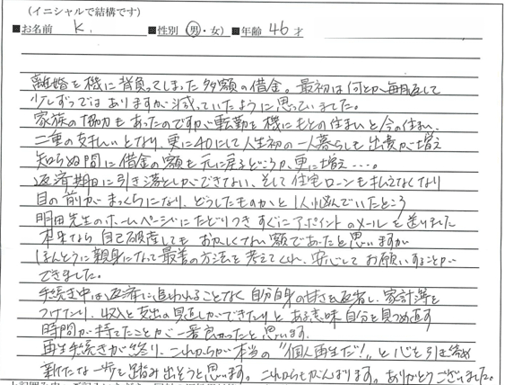 (イニシャルで結構です)
■お名前 K. ■性別 (男・女) ■年齢 46 才
離婚を機に背負ってしまった多額の借金。最初は何とか毎月返して
少しずつではありますが減っていたように思っていました。
家族の協力もあったのですが転勤を機にもとの住まいと今の住い、
二重の支払いとなり、更に40にして人生初の一人暮らしも出費が増え
知らぬ間に借金の額も元に戻るどころか、更に増え・・・・。
返済期日に引き落としができない、そして住宅ローンも払えなくなり
目の前がまっくらになり、どうしたものかと1人悩んでいたところ
明田先生のホームページにたどりつきすぐにアポイントのメールを送りました
本来なら自己破産してもおかしくない額であったと思いますが
ほんとうに親身になって最善の方法を考えてくれ、安心してお願いすることが
できました。
手続き中は返済に追われることなく自分自身の甘さを反省し、家計簿を
つけたり、収入と支出の見直しができたりとある意味自分を見つめ直す
時間が持てたことが一番良かったと思います。
再生手続きが終り、これからが本当の"個人再生だ!"と心を引き締め
新たな一歩を踏み出そうと思います。これからもがんばります。ありがとうございました。